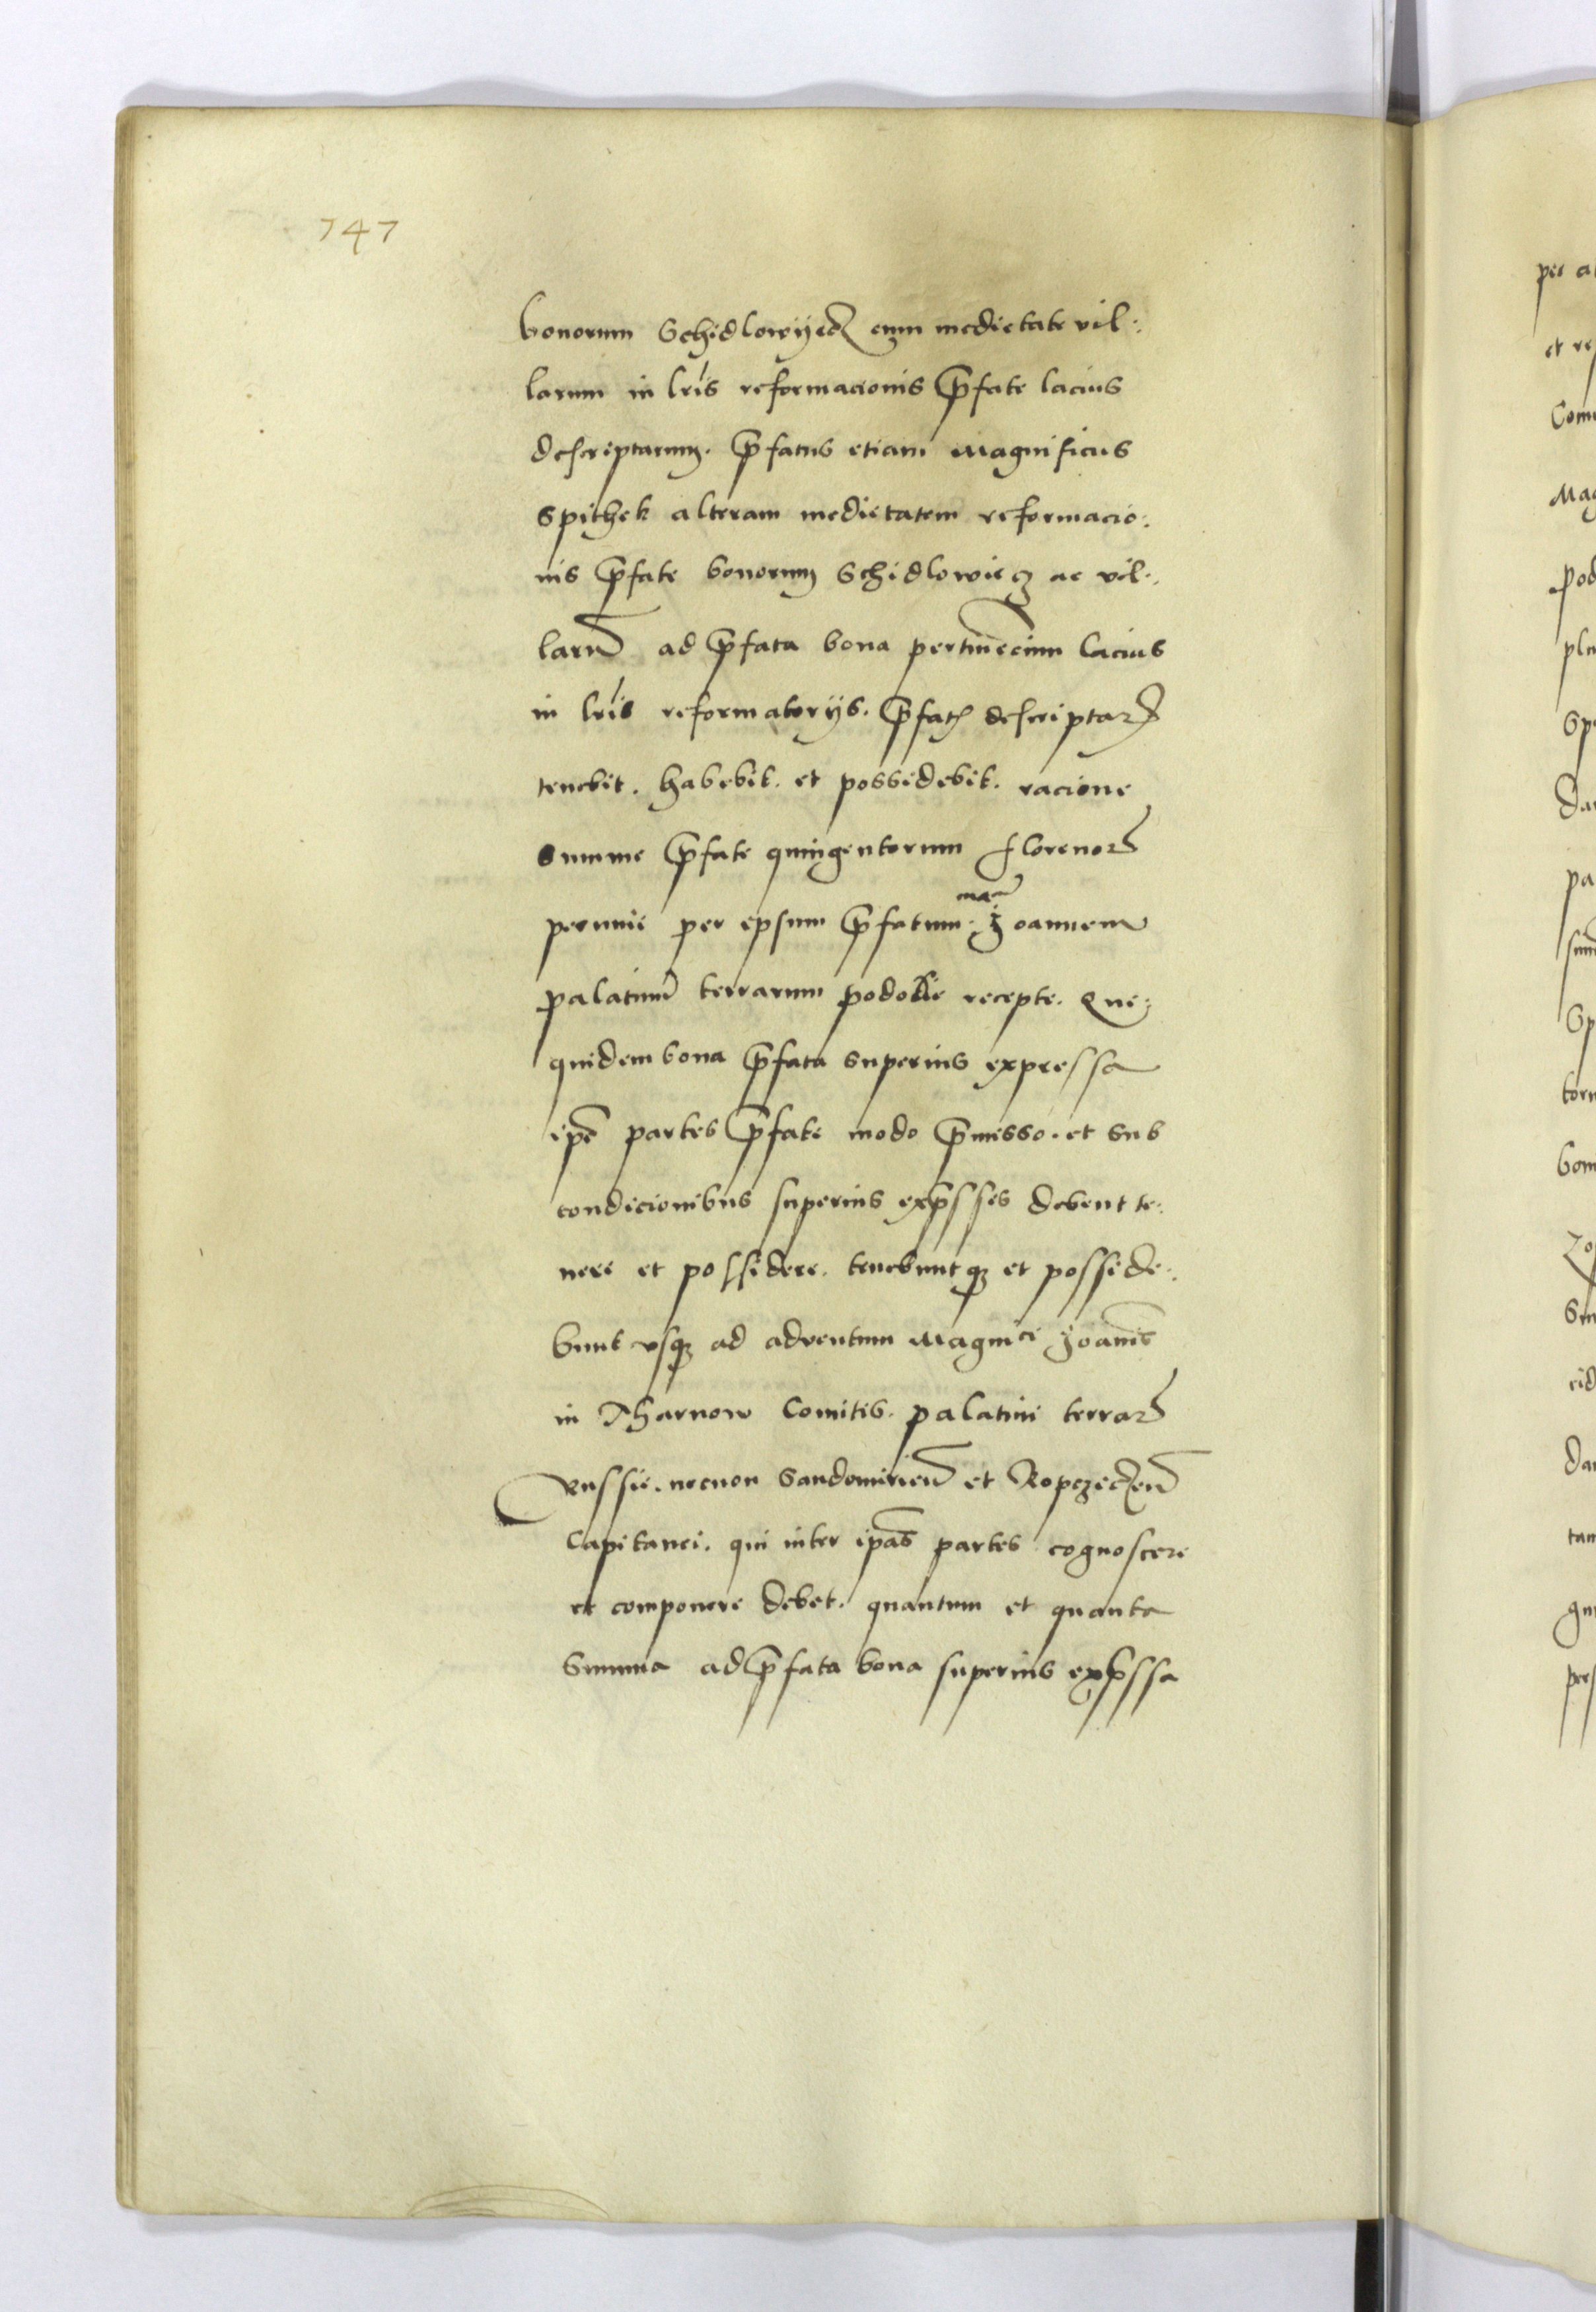 747
bonorum Schidlowyecz cum medietate vil:
larum in lr̄is reformacionis p̄fate lacius
descriptarum. p̄fatus etiam Magnificus
Spithek alteram medietatem reformacio:
nis p̄fate bonorum Schidlowiecz ac vil:
larū ad p̄fata bona pertinēcium lacius
in lr̄is reformatorijs. p̄fatꝭ descriptarꝝ
tenebit. habebit. et possidebit. racione
summe p̄fate quingentorum florenorꝝ
pecunie per epsum p̄fatum. Joannem
palatinū terrarum podolie recepte. Que
quidem bona p̄fata superius expressa
ip̄e partes p̄fate modo p̄misso. et sub
condicionibus superius exp̄ssis debent te:
nere et possidere. tenebuntqꝫ et posside:
bunt vsqꝫ ad adventum Magnici Joānis
in Tharnow Comitis. palatini terrarꝝ
Russie. necnon Sandomirieñ et Ropcziczeñ
Capitanei. qui inter ip̄as partes cognoscere
et componere debet. quantum et quanta
Summa ad p̄fata bona superius exp̄ssa
per
et re
Com
Mag
pod
Sp
pa
Sp
tor
bon
tam